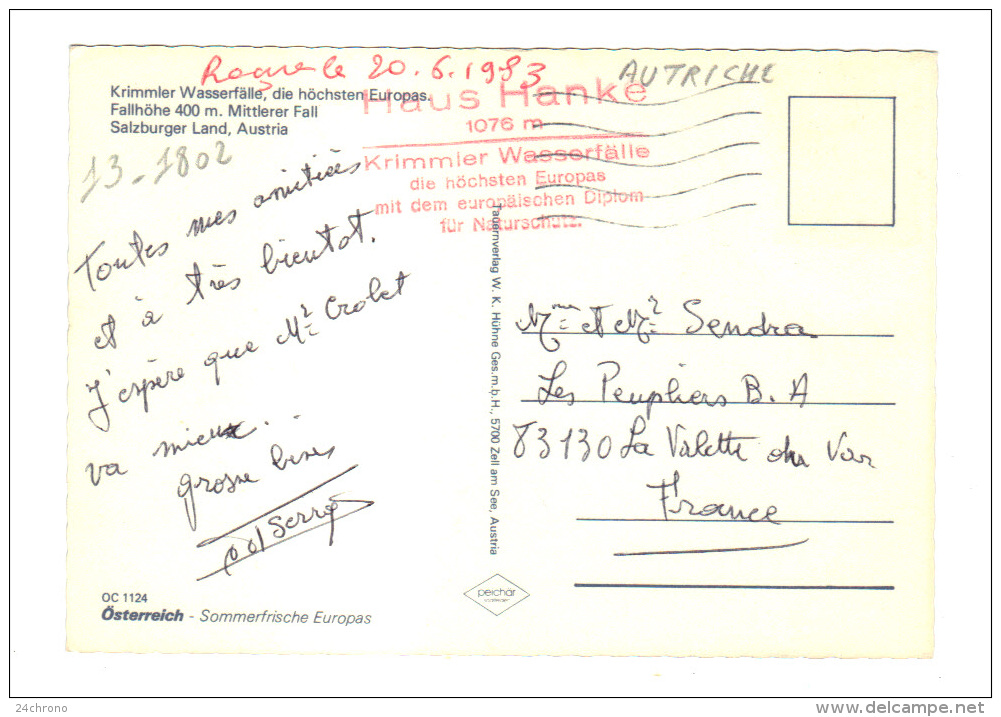 20.6.1983
AUTRICHE
Krimmler Wasserfälle, die höchsten Europas.
Fallhöhe 400 m. Mittlerer Fall
Salzburger Land, Austria
13-1802
Haus Hanke
1076 m
Krimmler Wasserfälle
die höchsten Europas
mit dem europäischen Diplom
für Naturschutz.
Toutes mes amitiés
et à très bientot.
J'espère que Mr Crobet
va mieux.
grosses bises
Tauernverlag W. K. Hühne Ges.m.b.H., 5700 Zell am See, Austria
Mme et Mr Sendra
Les Peupliers B. A
83130 La Valette du Var
France
OC 1124
Österreich - Sommerfrische Europas
peichär
24chrono
delcampe.net